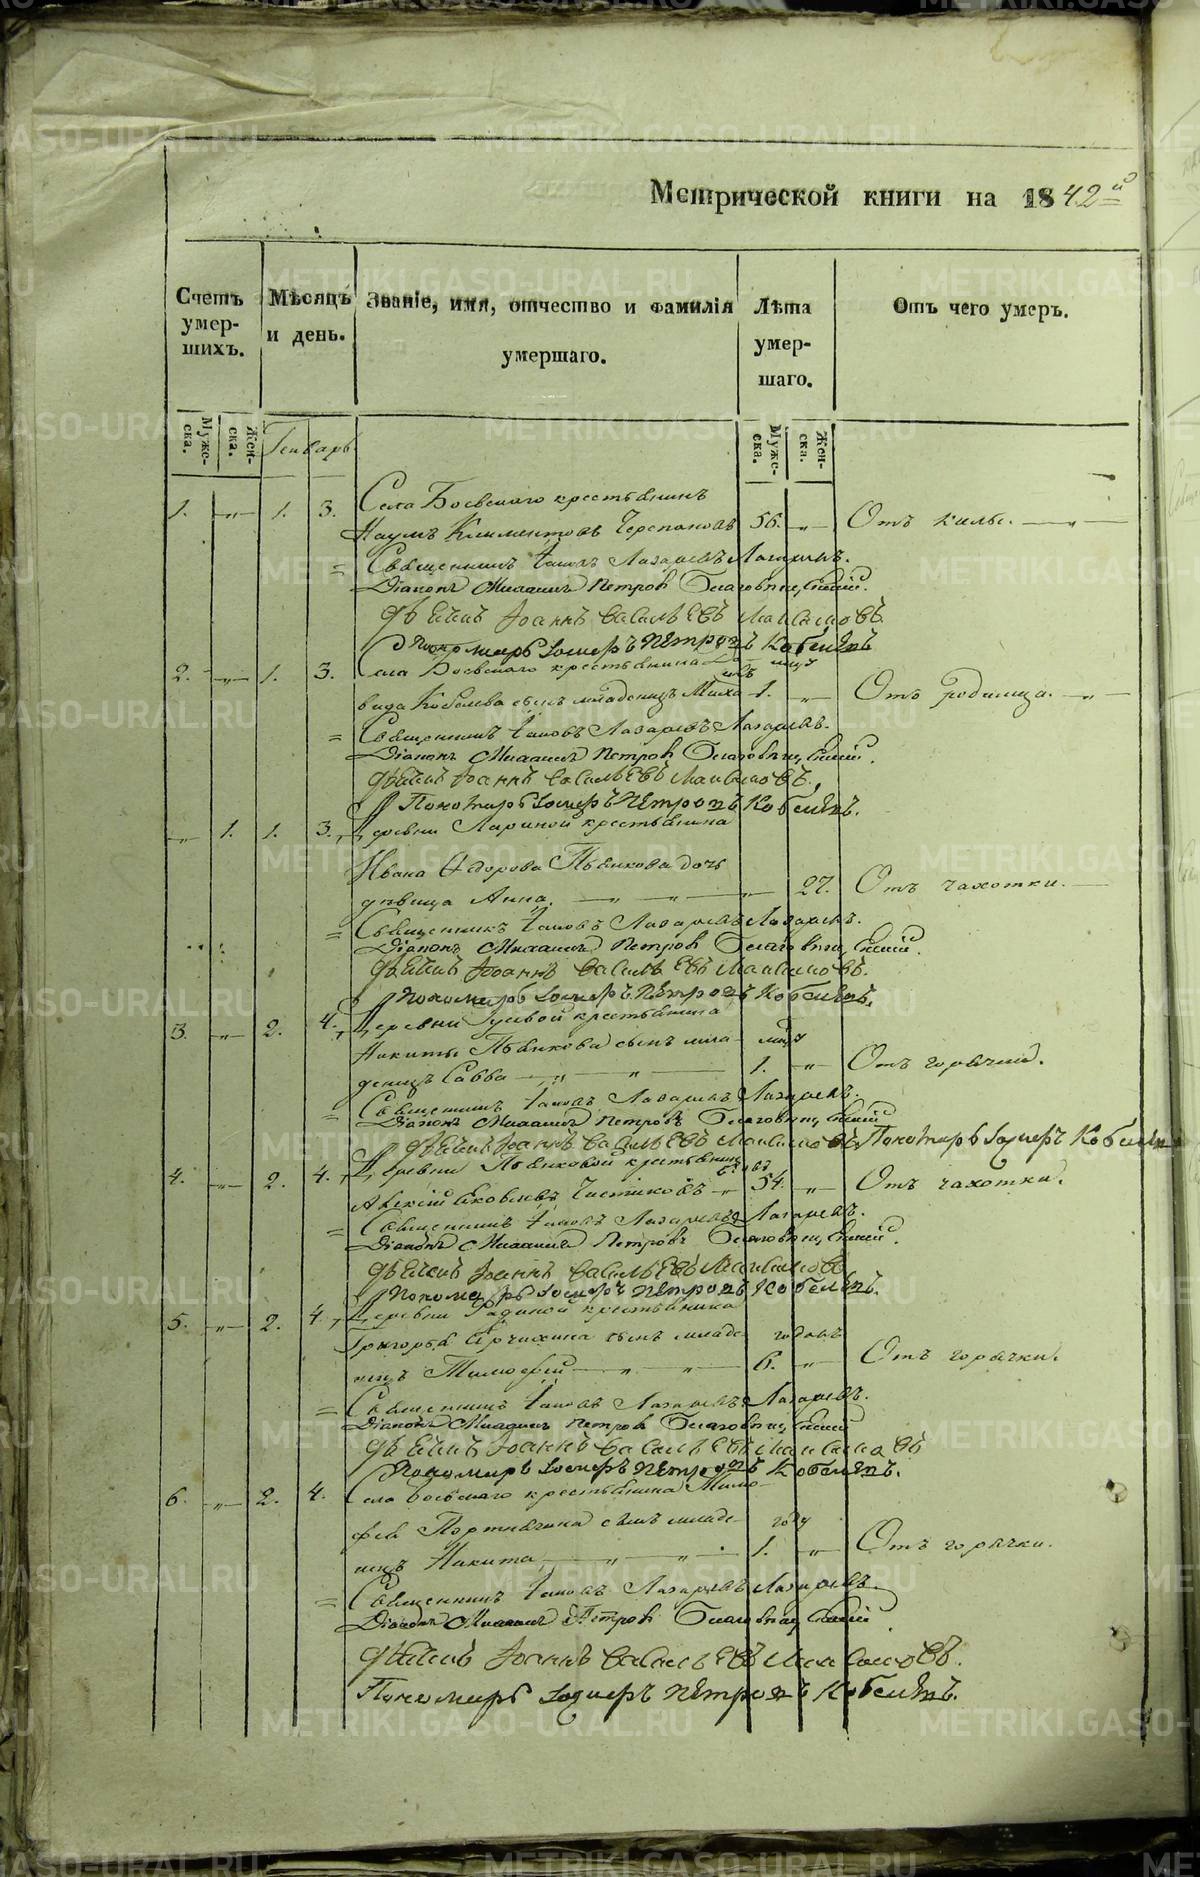 Метрической книги на 1842й
Счетъ умер-шихъ.
Мѣсяцъ и день.
Званіе, имя, отчество и фамилія умершаго.
Лѣта умер-шаго.
Отъ чего умеръ.
Муже-ска.
Жен-ска.
Генварь
Муже-ска.
Жен-ска.
Села Боевскаго крестьянинъ
1. „ 1. 3. Наумъ Климентовъ Черепановъ 56. „ Отъ килы. „
Священникъ Іаковъ Лазаревъ Лазаревъ.
Діаконъ Михаилъ Петровъ Благовѣщенскій.
Дьячекъ Іоаннъ Васильевъ Максимовъ.
Пономарь Іосифъ Петровъ Кобелевъ
2. „ 1. 3. Села Боевскаго крестьянина Да-
вида Кобелева сынъ младенецъ Миха 1. „ Отъ родимца. „
Священникъ Іаковъ Лазаревъ Лазаревъ.
Діаконъ Михаилъ Петровъ Благовѣщенскій.
Дьячекъ Іоаннъ Васильевъ Максимовъ.
Пономарь Іосифъ Петровъ Кобелевъ.
„ 1. 1. 3. Деревни Лариной крестьянина
Ивана Ѳедорова Пьянкова дочь
дѣвица Анна. „ „ „ 27. Отъ чахотки.
Священникъ Іаковъ Лазаревъ Лазаревъ.
Діаконъ Михаилъ Петровъ Благовѣщенскій.
Дьячекъ Іоаннъ Васильевъ Максимовъ.
Пономарь Іосифъ Петровъ Кобелевъ.
3. „ 2. 4. Деревни Гусевой крестьянина
Никиты Пьянкова сынъ мла-
денецъ Савва „ „ 1. „ Отъ горячки.
Священникъ Іаковъ Лазаревъ Лазаревъ.
Діаконъ Михаилъ Петровъ Благовѣщенскій
Дьячекъ Іоаннъ Васильевъ Максимовъ Пономарь Іосифъ Кобелевъ
4. „ 2. 4. Деревни Пьянковой крестьянинъ
Алексій Яковлевъ Чистяковъ „ 54. „ Отъ чахотки.
Священникъ Іаковъ Лазаревъ Лазаревъ.
Діаконъ Михаилъ Петровъ Благовѣщенскій.
Дьячекъ Іоаннъ Васильевъ Максимовъ
Пономарь Іосифъ Петровъ Кобелевъ.
5. „ 2. 4. Деревни крестьянина
Григорья сынъ младе- годовъ
нецъ Тимофей „ „ 6. „ Отъ горячки.
Священникъ Іаковъ Лазаревъ Лазаревъ.
Діаконъ Михаилъ Петровъ Благовѣщенскій
Дьячекъ Іоаннъ Васильевъ Максимовъ
Пономарь Іосифъ Петровъ Кобелевъ.
6. „ 2. 4. Села Боевскаго крестьянина Тимо-
фея Портнягина сынъ младе- году
нецъ Никита, „ „ 1. „ Отъ горячки.
Священникъ Іаковъ Лазаревъ Лазаревъ.
Діаконъ Михаилъ Петровъ Благовѣщенскій
Дьячекъ Іоаннъ Васильевъ Максимовъ.
Пономарь Іосифъ Петровъ Кобелевъ.
METRIKI.GASO-URAL.RU